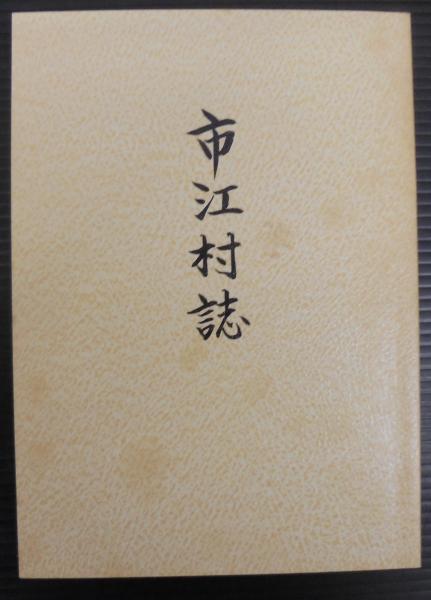 市江村誌